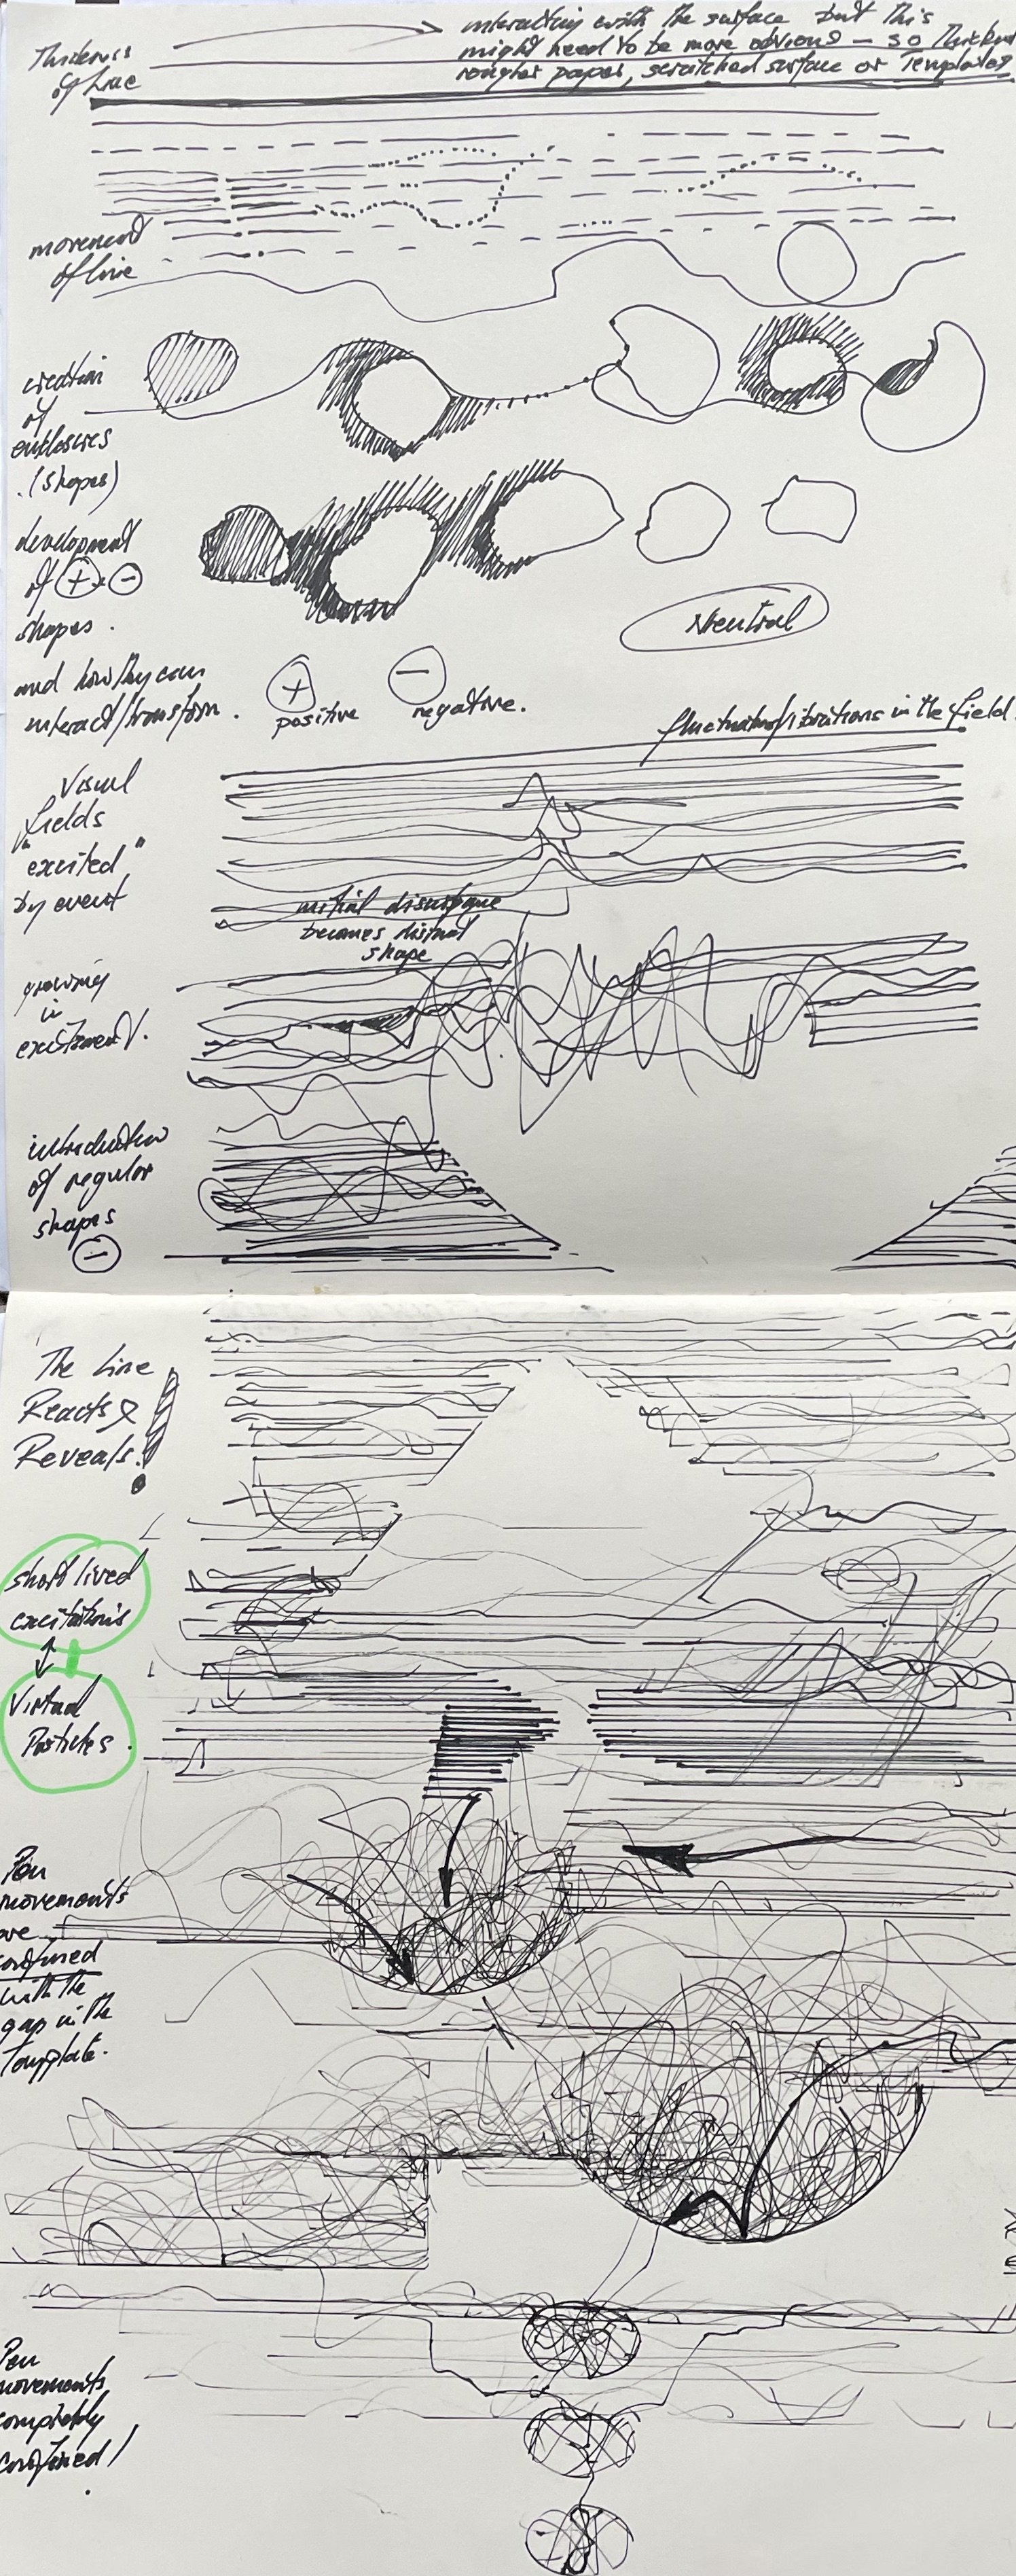 Thickness
of Line
interacting with the surface but this
might need to be more obvious – so thicker
rougher paper, scratched surface or templates
movement
of line
creation
of
enclosures
(shapes)
development
of + & −
shapes.
and how they can
interact/transform.
Neutral
+
positive
−
negative.
fluctuations/vibrations in the field
Visual
fields
"excited"
by event
initial
becomes
shape
growing
in
excitement.
introduction
of regular
shapes
−
The Line
Reacts &
Reveals!
short lived
excitations
Virtual
Particles.
Pen
movements
are
confined
with the
gap in the
Template.
Pen
movements
completely
confined!